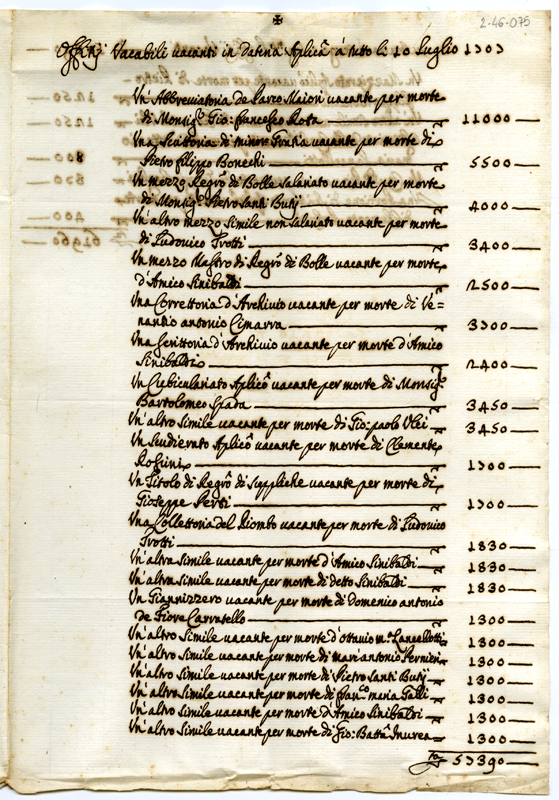 ✠
2-46-075
Offitij Vacabili vacanti in Dataria Aplicã à tutto li 10 Luglio 1703
Un' Abbreviatoria de Parco Maiori vacante per morte
di Monsig.r Gio: francesco Rota 11000
Una Scrittoria di minor Gratia vacante per morte di
Pietro filippo Bonechi 5500
Un mezzo Regrõ di Bolle salariato vacante per morte
di Monsig.r Pietro Santi Butij 4000
Un' altro mezzo Simile non salariato vacante per morte
di Ludovico Trotti 3400
Un mezzo Mastro di Regrõ di Bolle vacante per morte
d'Amico Sinibaldi 2500
Una Correttoria d'Archivio vacante per morte di Ve=
nantio antonio Cimarra 3700
Una Scrittoria d'Archivio vacante per morte d'Amico
Sinibaldi 2400
Un Cubiculariato Aplicõ vacante per morte di Monsig.r
Bartolomeo Spada 3450
Un' altro Simile vacante per morte di Gio: paolo Ulei 3450
Un Scudierato Aplicõ vacante per morte di Clemente
Rospini 1700
Un Titolo di Regrõ di Suppliche vacante per morte di
Gioseppe Perti 1700
Una Collettoria del Piombo vacante per morte di Ludovico
Trotti 1830
Un' altra Simile vacante per morte d'Amico Sinibaldi 1830
Un' altra Simile vacante per morte di detto Sinibaldi 1830
Un Giannizzero vacante per morte di Domenico antonio
de Fiore Carratello 1300
Un' altro Simile vacante per morte d'ottavio m.a Lancellotti 1300
Un' altro Simile vacante per morte di marc'antonio Pernier 1300
Un' altro Simile vacante per morte di Pietro Santi Butij 1300
Un' altro Simile vacante per morte di fran.co maria Galli 1300
Un' altro Simile vacante per morte d'Amico Sinibaldi 1300
Un' altro Simile vacante per morte di Gio: Battã Inurea 1300
57390